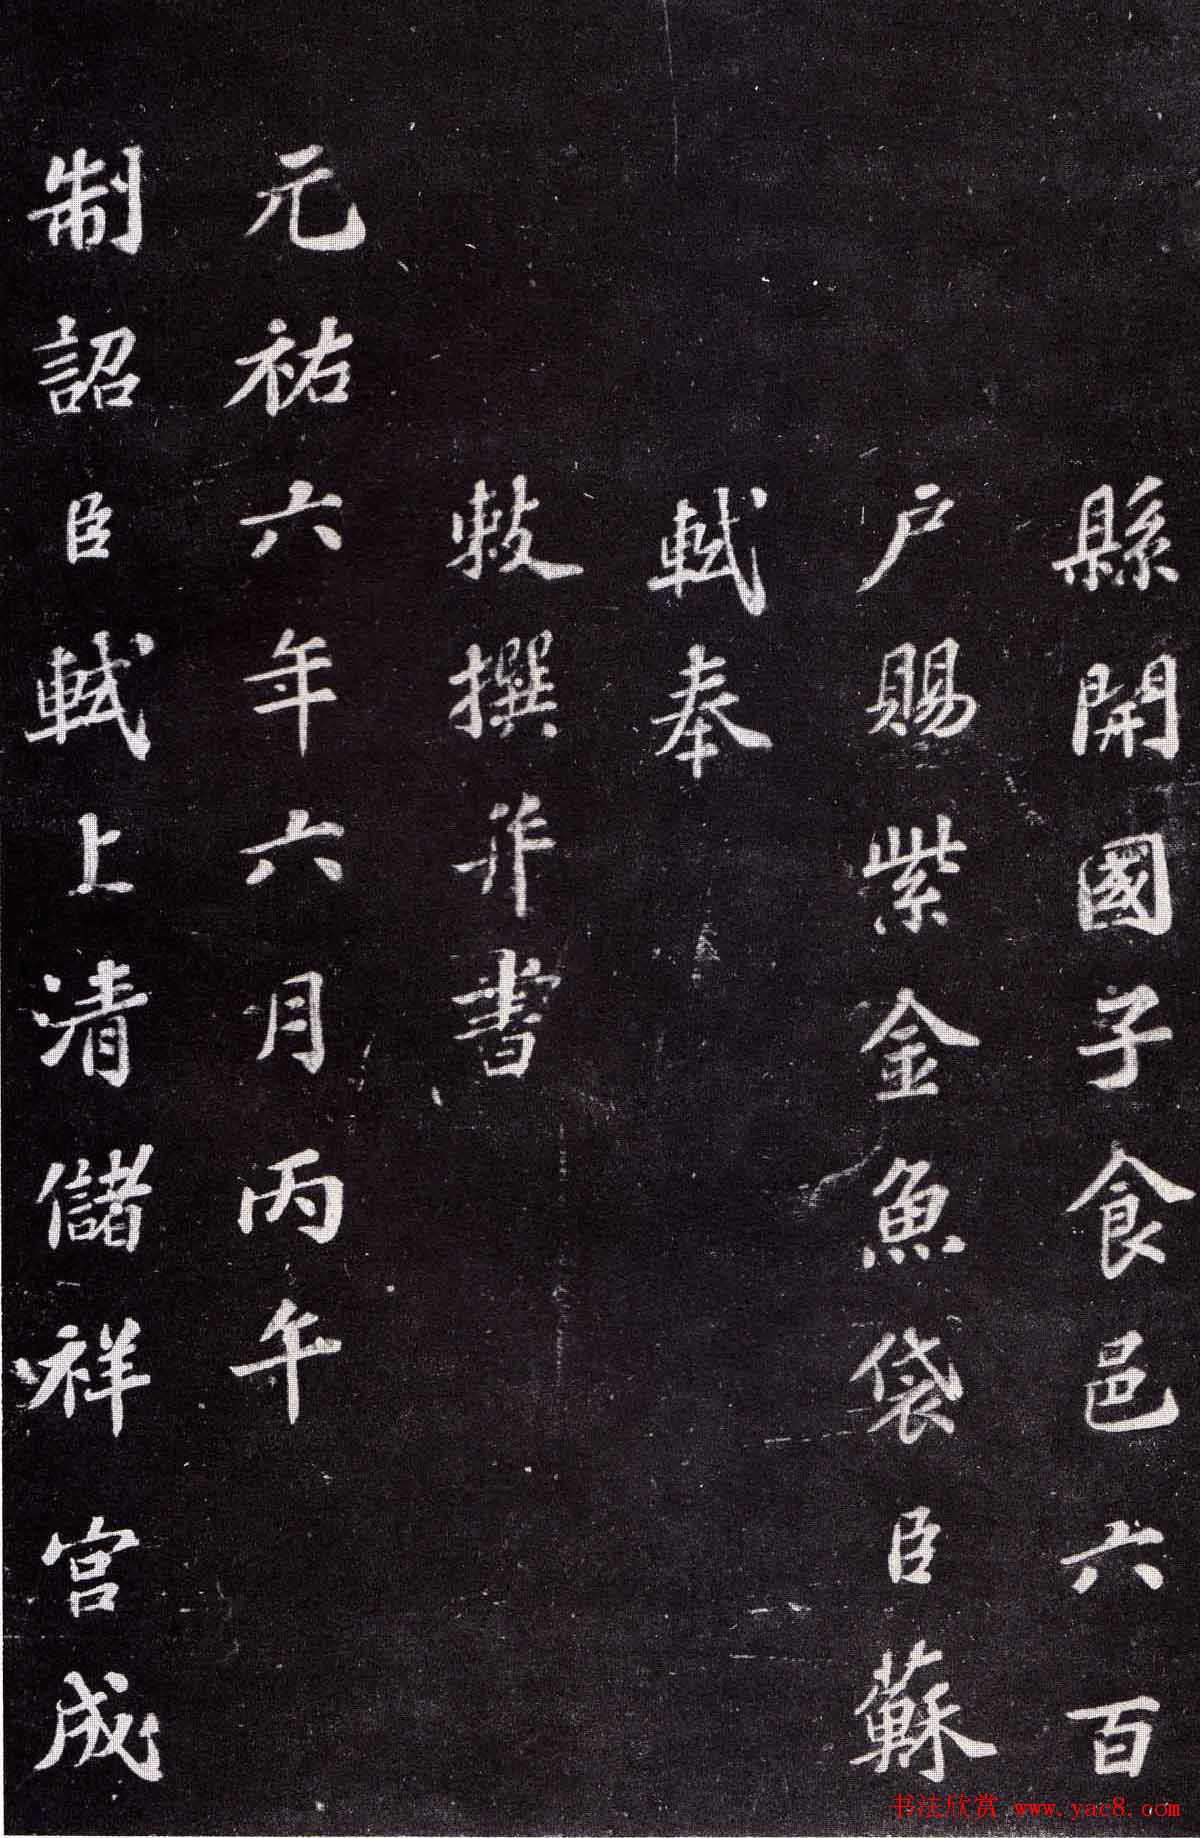 縣開國子食邑六百
戶賜紫金魚袋臣蘇
軾奉
敕撰并書
元祐六年六月丙午
制詔臣軾上清儲祥宮成
书法欣赏 www.yac8.com